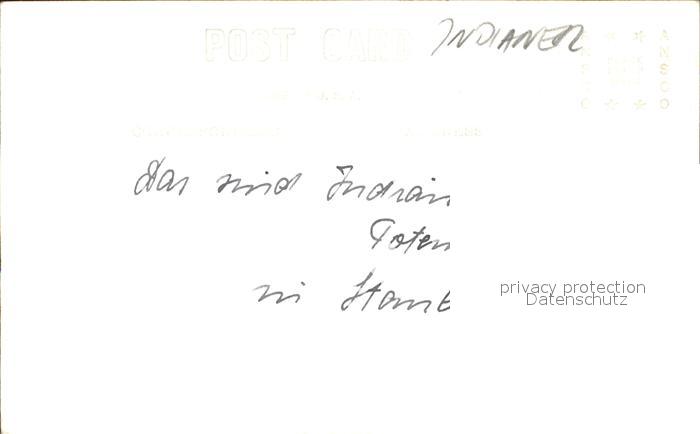 POST CARD INDIANER
ANSCO
U.S.A.
CORRESPONDENCE ADDRESS
Das sind Indian
Toten
in
privacy protection
Datenschutz